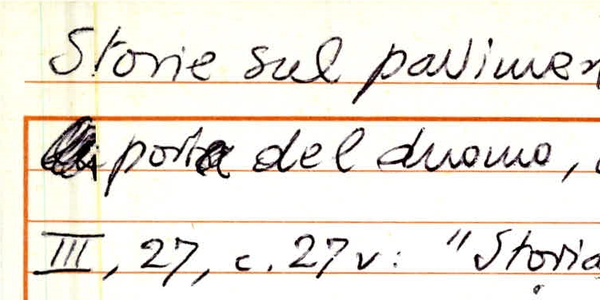 Storie sul pavimen
porta del duomo,
III, 27, c. 27 v: "Storia